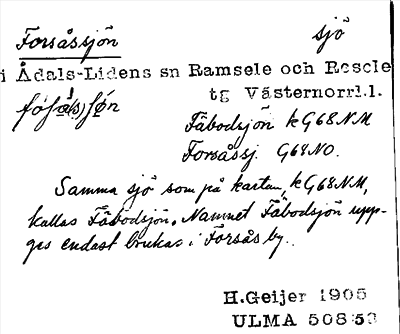 Forsåssjön sjö
i Ådals-Lidens sn Ramsele och Resele
tg Västernorrl.l.
Fäbodsjön kG68NM
Forsåssj. G64NO.
Samma sjö som på kartan, kG68NM,
kallas Fäbodsjön. Namnet Fäbodsjön upp-
ges endast brukas i Forsås by.
H.Geijer 1905
ULMA 508:53